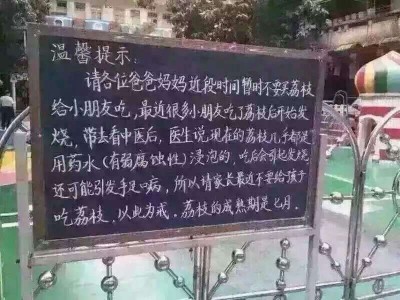 温馨提示:
请各位爸爸妈妈近段时间暂时不要买荔枝
给小朋友吃,最近很多小朋友吃了荔枝后开始发
烧,带去看中医后,医生说现在的荔枝几乎都是
用药水(有弱腐蚀性)浸泡的,吃后会引起发烧
还可能引发手足口病,所以请家长最近不要给孩子
吃荔枝,以此为戒,荔枝的成熟期是七月.